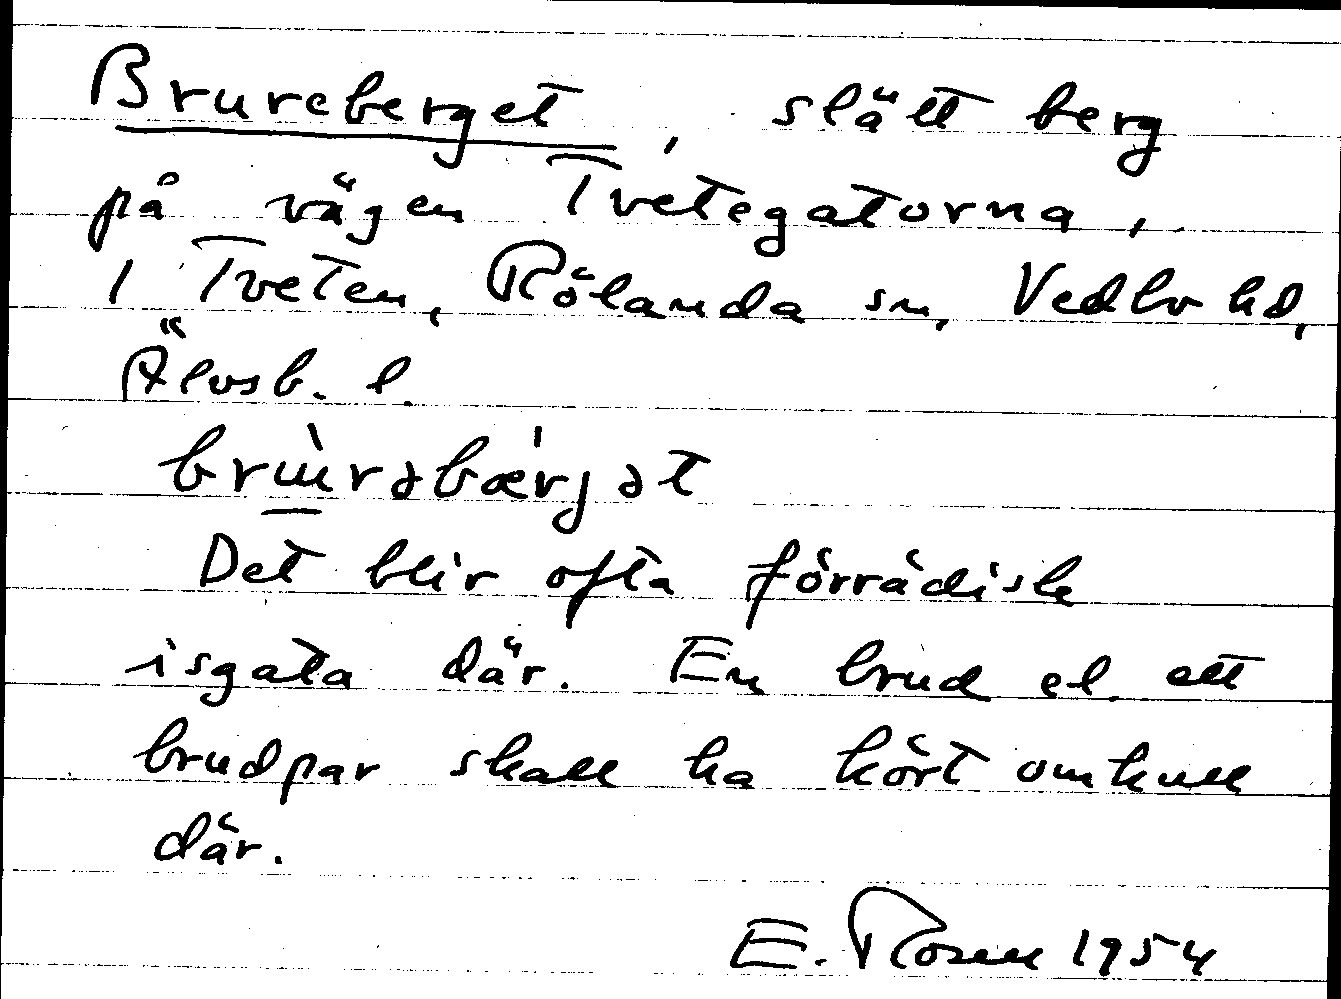 Brureberget, slätt berg
på vägen Tvetegatorna,
i Tveten, Rölanda sn, Vedbo hd,
Älvsb. l.
brɯ̀rəbæ'rjət
Det blir ofta förrädisk
isgata där. En brud el. ett
brudpar skall ha kört omkull
där.
E. Rosen 1954